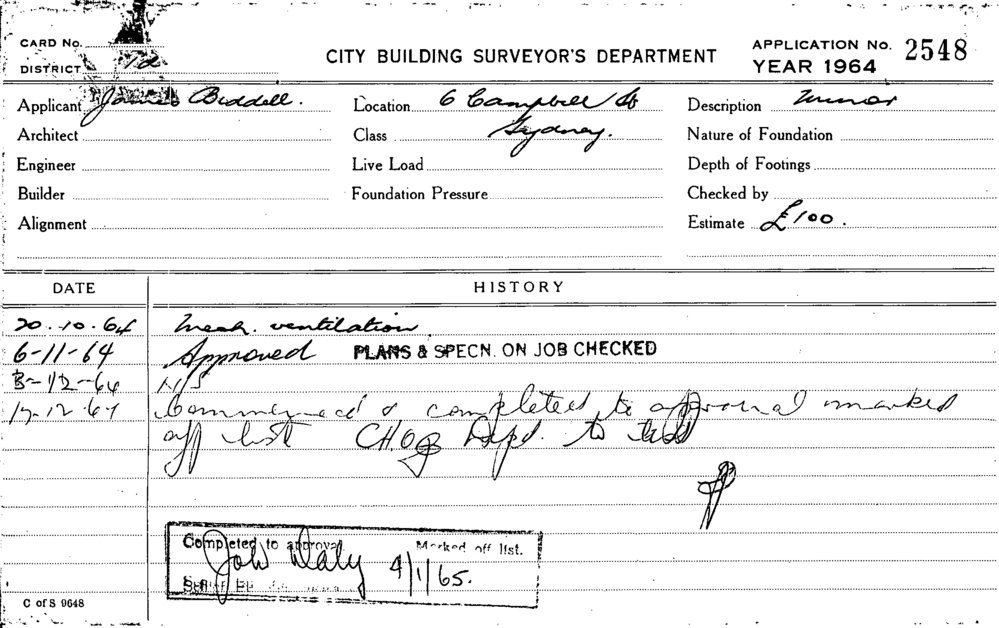 CARD No.
DISTRICT 1d
CITY BUILDING SURVEYOR'S DEPARTMENT
APPLICATION No. 2548
YEAR 1964
Applicant James Biddell.
Location 6 Campbell St
Sydney.
Description Minor
Architect
Class
Nature of Foundation
Engineer
Live Load
Depth of Footings
Builder
Foundation Pressure
Checked by
Alignment
Estimate £100.
DATE HISTORY
20.10.64 Mech. ventilation
6-11-64 Approved PLANS & SPECN. ON JOB CHECKED
3-12-64 N/S
17-12-64 Commenced & completed to approval marked
off list CHO Dept. to
Completed to approval Marked off list.
Daly 4/1/65.
C of S 9648